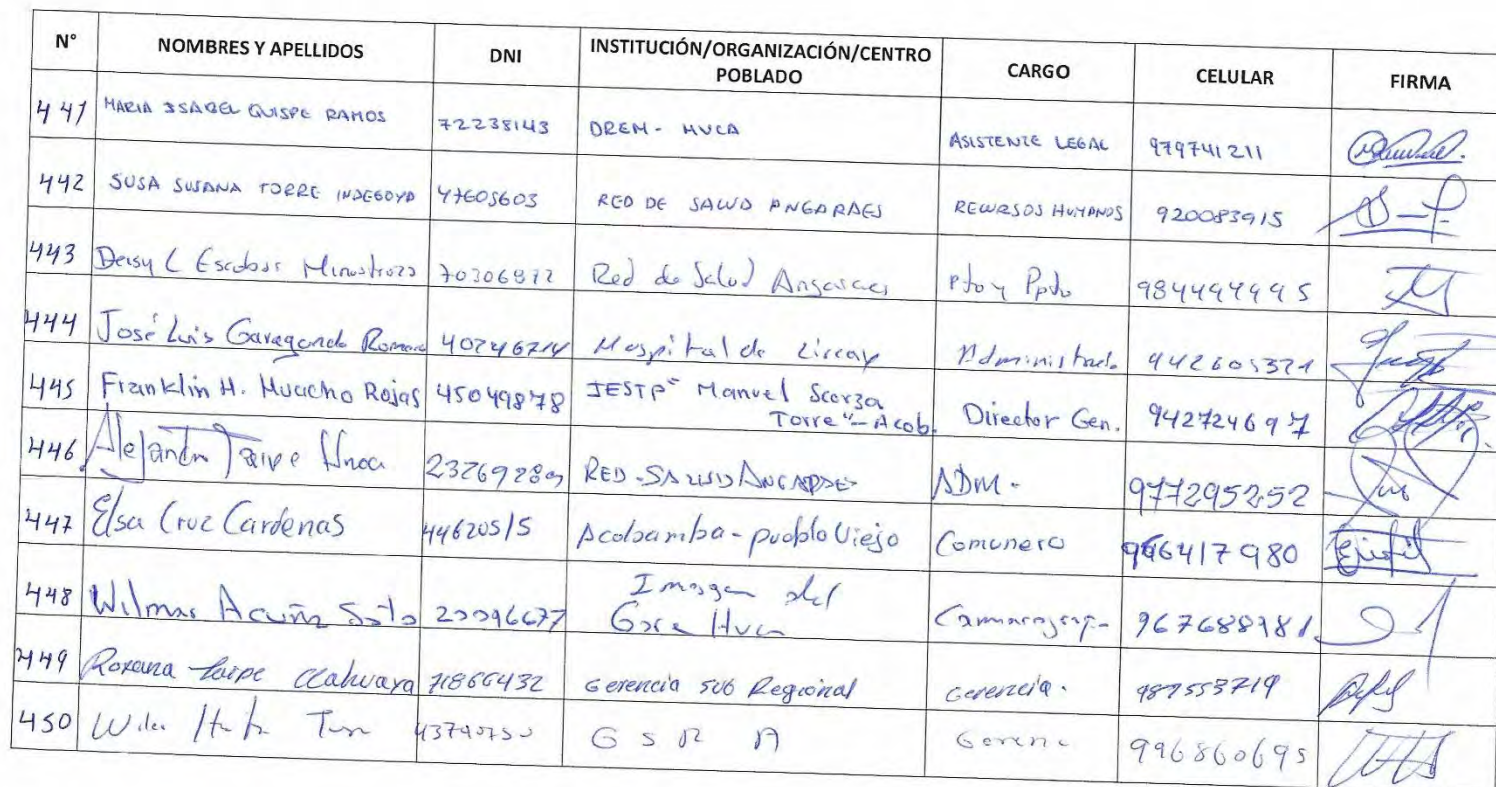 N° NOMBRES Y APELLIDOS DNI INSTITUCIÓN/ORGANIZACIÓN/CENTRO POBLADO CARGO CELULAR FIRMA
441 MARIA ISABEL QUISPE RAMOS 72238143 DREM - HVCA ASISTENTE LEGAL 979741211
442 SUSA SUSANA TORRE 47605603 RED DE SALUD ANGARAES RECURSOS HUMANOS 920083915
443 Deisy L Escobar Red de Salud Angaraes Pto y Ppto
444 José Luis Garagondo Hospital de Lircay
445 Franklin H. Huacho Rojas 45049878 IESTP "Manuel Scorza Torre" - Acob. Director Gen. 942724697
446 Alejandro Taipe RED - SALUD ANGARAES ADM - 977295252
447 Elsa Cruz Cardenas 44620515 Acobamba - pueblo Viejo Comunero 966417980
448 Wilmar Acuña Soto Imagen del Gore Hvca
449 Roxana Taipe Ccahuaya 71866432 Gerencia sub Regional Gerencia. 987553719
450 G S R A 996860695